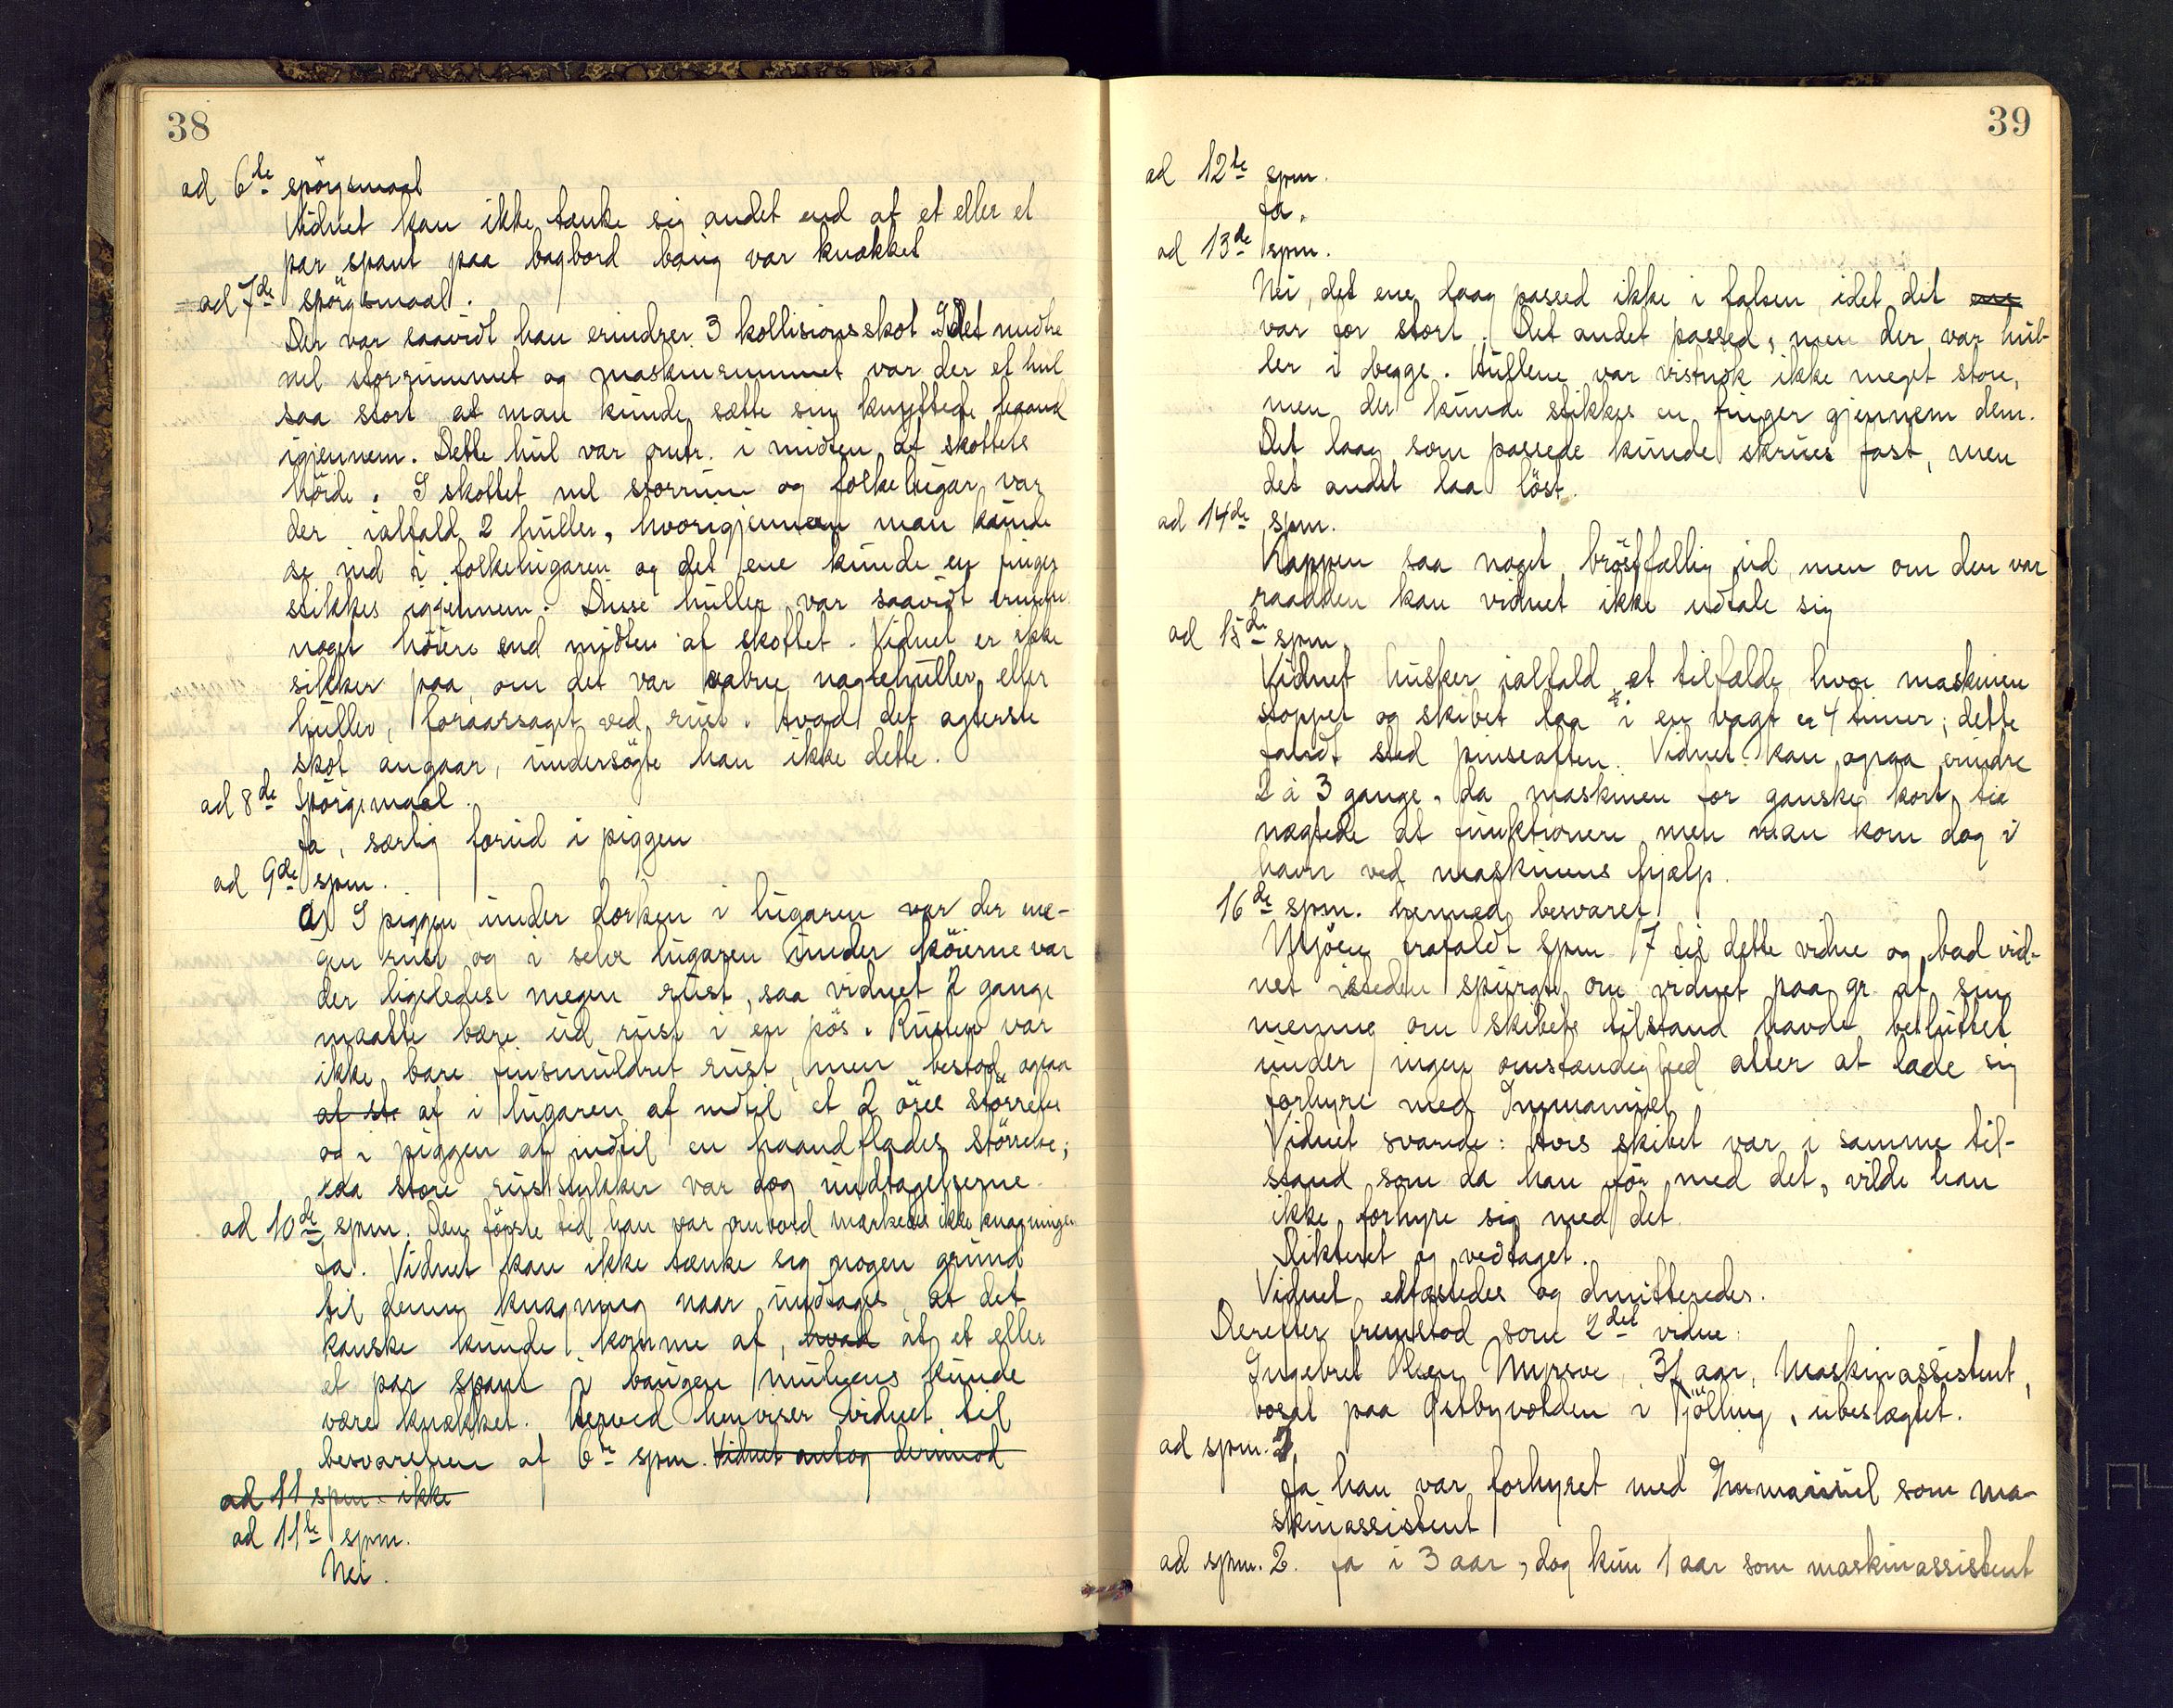 38
ad 6te spörgsmaal
Vidnet kan ikke tænke sig andet end at et eller et
par spant paa bagbord baug var knækket
ad 7de spörgsmaal.
Der var saavidt han erindrer 3 kollisionsskot. I det midtre
mel storrummet og maskinrummet var der et hul
saa stort at man kunde sætte sin knyttede haand
igjennem. Dette hul var omtr. i midten af skottets
höide. I skottet mel storrum og folkelugar var
der ialfald 2 huller, hvorigjennem man kunde
se ind i folkelugaren og det ene kunde en finger
stikkes igjennem. Disse huller var saavidt erindres
noget höiere end midten af skottet. Vidnet er ikke
sikker paa, om det var aabne naglehuller eller
huller, foraarsaget ved rust. Hvad det agterste
skot angaar, undersögte han ikke dette.
ad 8de Spörgsmaal.
Ja, særlig forud i piggen
ad 9de spm.
a) I piggen under dørken i lugaren var der me-
gen rust og i selve lugaren under köierne var
der ligeledes megen rust, saa vidnet 2 gange
maatte bære ud rust i en pös. Rusten var
ikke bare finsmuldret rust, men bestod ogsaa
af stø af i lugaren af indtil et 2 öres störrelse
og i piggen af indtil en haandflades störrelse;
saa store ruststykker var dog undtagelserne.
ad 10de spm. Den förste tid han var ombord mærkedes ikke knagningen
Ja. Vidnet kan ikke tænke sig nogen grund
til denne knagning naar undtages, at det
kanske kunde komme af, hvad at et eller
et par spant i baugen muligens kunde
være knækket. Herved henviser vidnet til
besvarelsen af 6te spm. Vidnet antog derimod
ad 11 spm. ikke
ad 11te spm.
Nei.
39
ad 12te spm.
Ja.
ad 13de spm.
Nei, det ene laag passed ikke i falsen, idet det ene
var for stort. Det andet passed, men der var hul-
ler i begge. Hullene var vistnok ikke meget store,
men der kunde stikkes en finger gjennem dem.
Det laag som passede kunde skrues fast, men
det andet laa löst.
ad 14de spm.
Kappen saa noget bröstfældig ud, men om den var
raadden kan vidnet ikke udtale sig
ad 15de spm.
Vidnet husker ialfald et tilfælde hvor maskinen
stoppet og skibet laa i en vagt o: 4 timer; dette
fandt sted pinseaften. Vidnet kan ogsaa erindre
2 à 3 gange, da maskinen for ganske kort tid
nægtede at funktionere, men man kom dog i
havn ved maskinens hjælp.
16de spm. hermed besvaret.
Mjöen frafaldt spm. 17 til dette vidne og bad vid-
net isteden spurgt, om vidnet paa gr. af sin
mening om skibets tilstand havde besluttet
under ingen omstændighed atter at lade sig
forhyre med Immanuel.
Vidnet svarede: Hvis skibet var i samme til-
stand som da han för med det, vilde han
ikke forhyre sig med det.
Dikteret og vedtaget.
Vidnet edfæstedes og dimitteredes.
Derefter fremstod som 2det vidne:
Ingebret Olsen Myrsve, 31 aar, Maskinassistent,
bosat paa Østbyvolden i Tjölling, ubeslægtet.
ad spm. 1.
Ja han var forhyret med Immanuel som ma-
skinassistent
ad spm. 2. Ja i 3 aar, dog kun 1 aar som maskinassistent